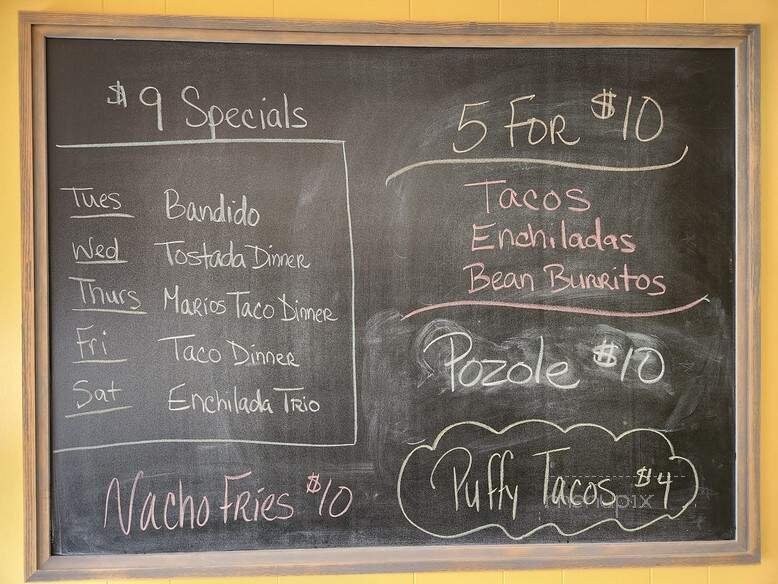 $9 Specials
Tues Bandido
Wed Tostada Dinner
Thurs Marios Taco Dinner
Fri Taco Dinner
Sat Enchilada Trio
Nacho Fries $10
5 For $10
Tacos
Enchiladas
Bean Burritos
Pozole $10
Puffy Tacos $4
menupix